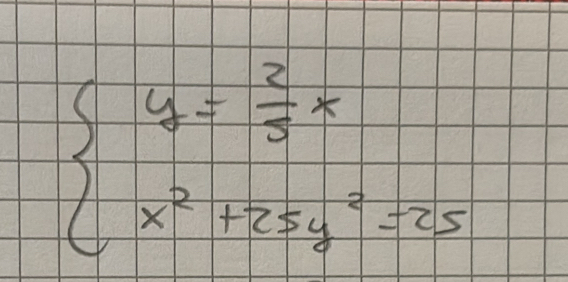 y = 2/5 x
x² + 25y² = 25